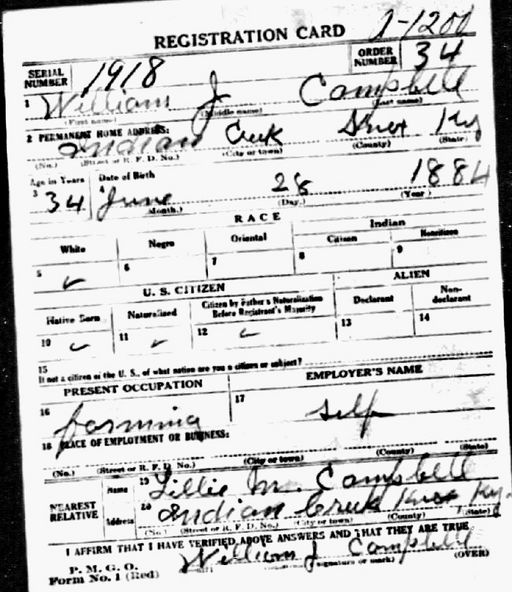 REGISTRATION CARD 1-1200
SERIAL NUMBER 1918 ORDER NUMBER 34
1 William J Campbell
(First name) (Middle name) (Last name)
2 PERMANENT HOME ADDRESS:
Indian Creek Knox Ky
(No.) (Street or R. F. D. No.) (City or town) (County) (State)
Age in Years Date of Birth
3 34 4 June 28 1884
(Month.) (Day.) (Year.)
RACE
White Negro Oriental Indian
Citizen Noncitizen
5 ✓ 6 7 8 9
U. S. CITIZEN ALIEN
Native Born Naturalized Citizen by Father's Naturalization Before Registrant's Majority Declarant Non-declarant
10 ✓ 11 ✓ 12 ✓ 13 14
15
If not a citizen of the U. S., of what nation are you a citizen or subject?
PRESENT OCCUPATION EMPLOYER'S NAME
16 farming 17 self
18 PLACE OF EMPLOYMENT OR BUSINESS:
(No.) (Street or R. F. D. No.) (City or town) (County) (State)
NEAREST RELATIVE Name 19 Lillie M. Campbell
Address 20 Indian Creek Knox Ky.
(No.) (Street or R. F. D. No.) (City or town) (County) (State)
I AFFIRM THAT I HAVE VERIFIED ABOVE ANSWERS AND THAT THEY ARE TRUE
P. M. G. O.
Form No. 1 (Red) William J Campbell
(Registrant's signature or mark) (OVER)